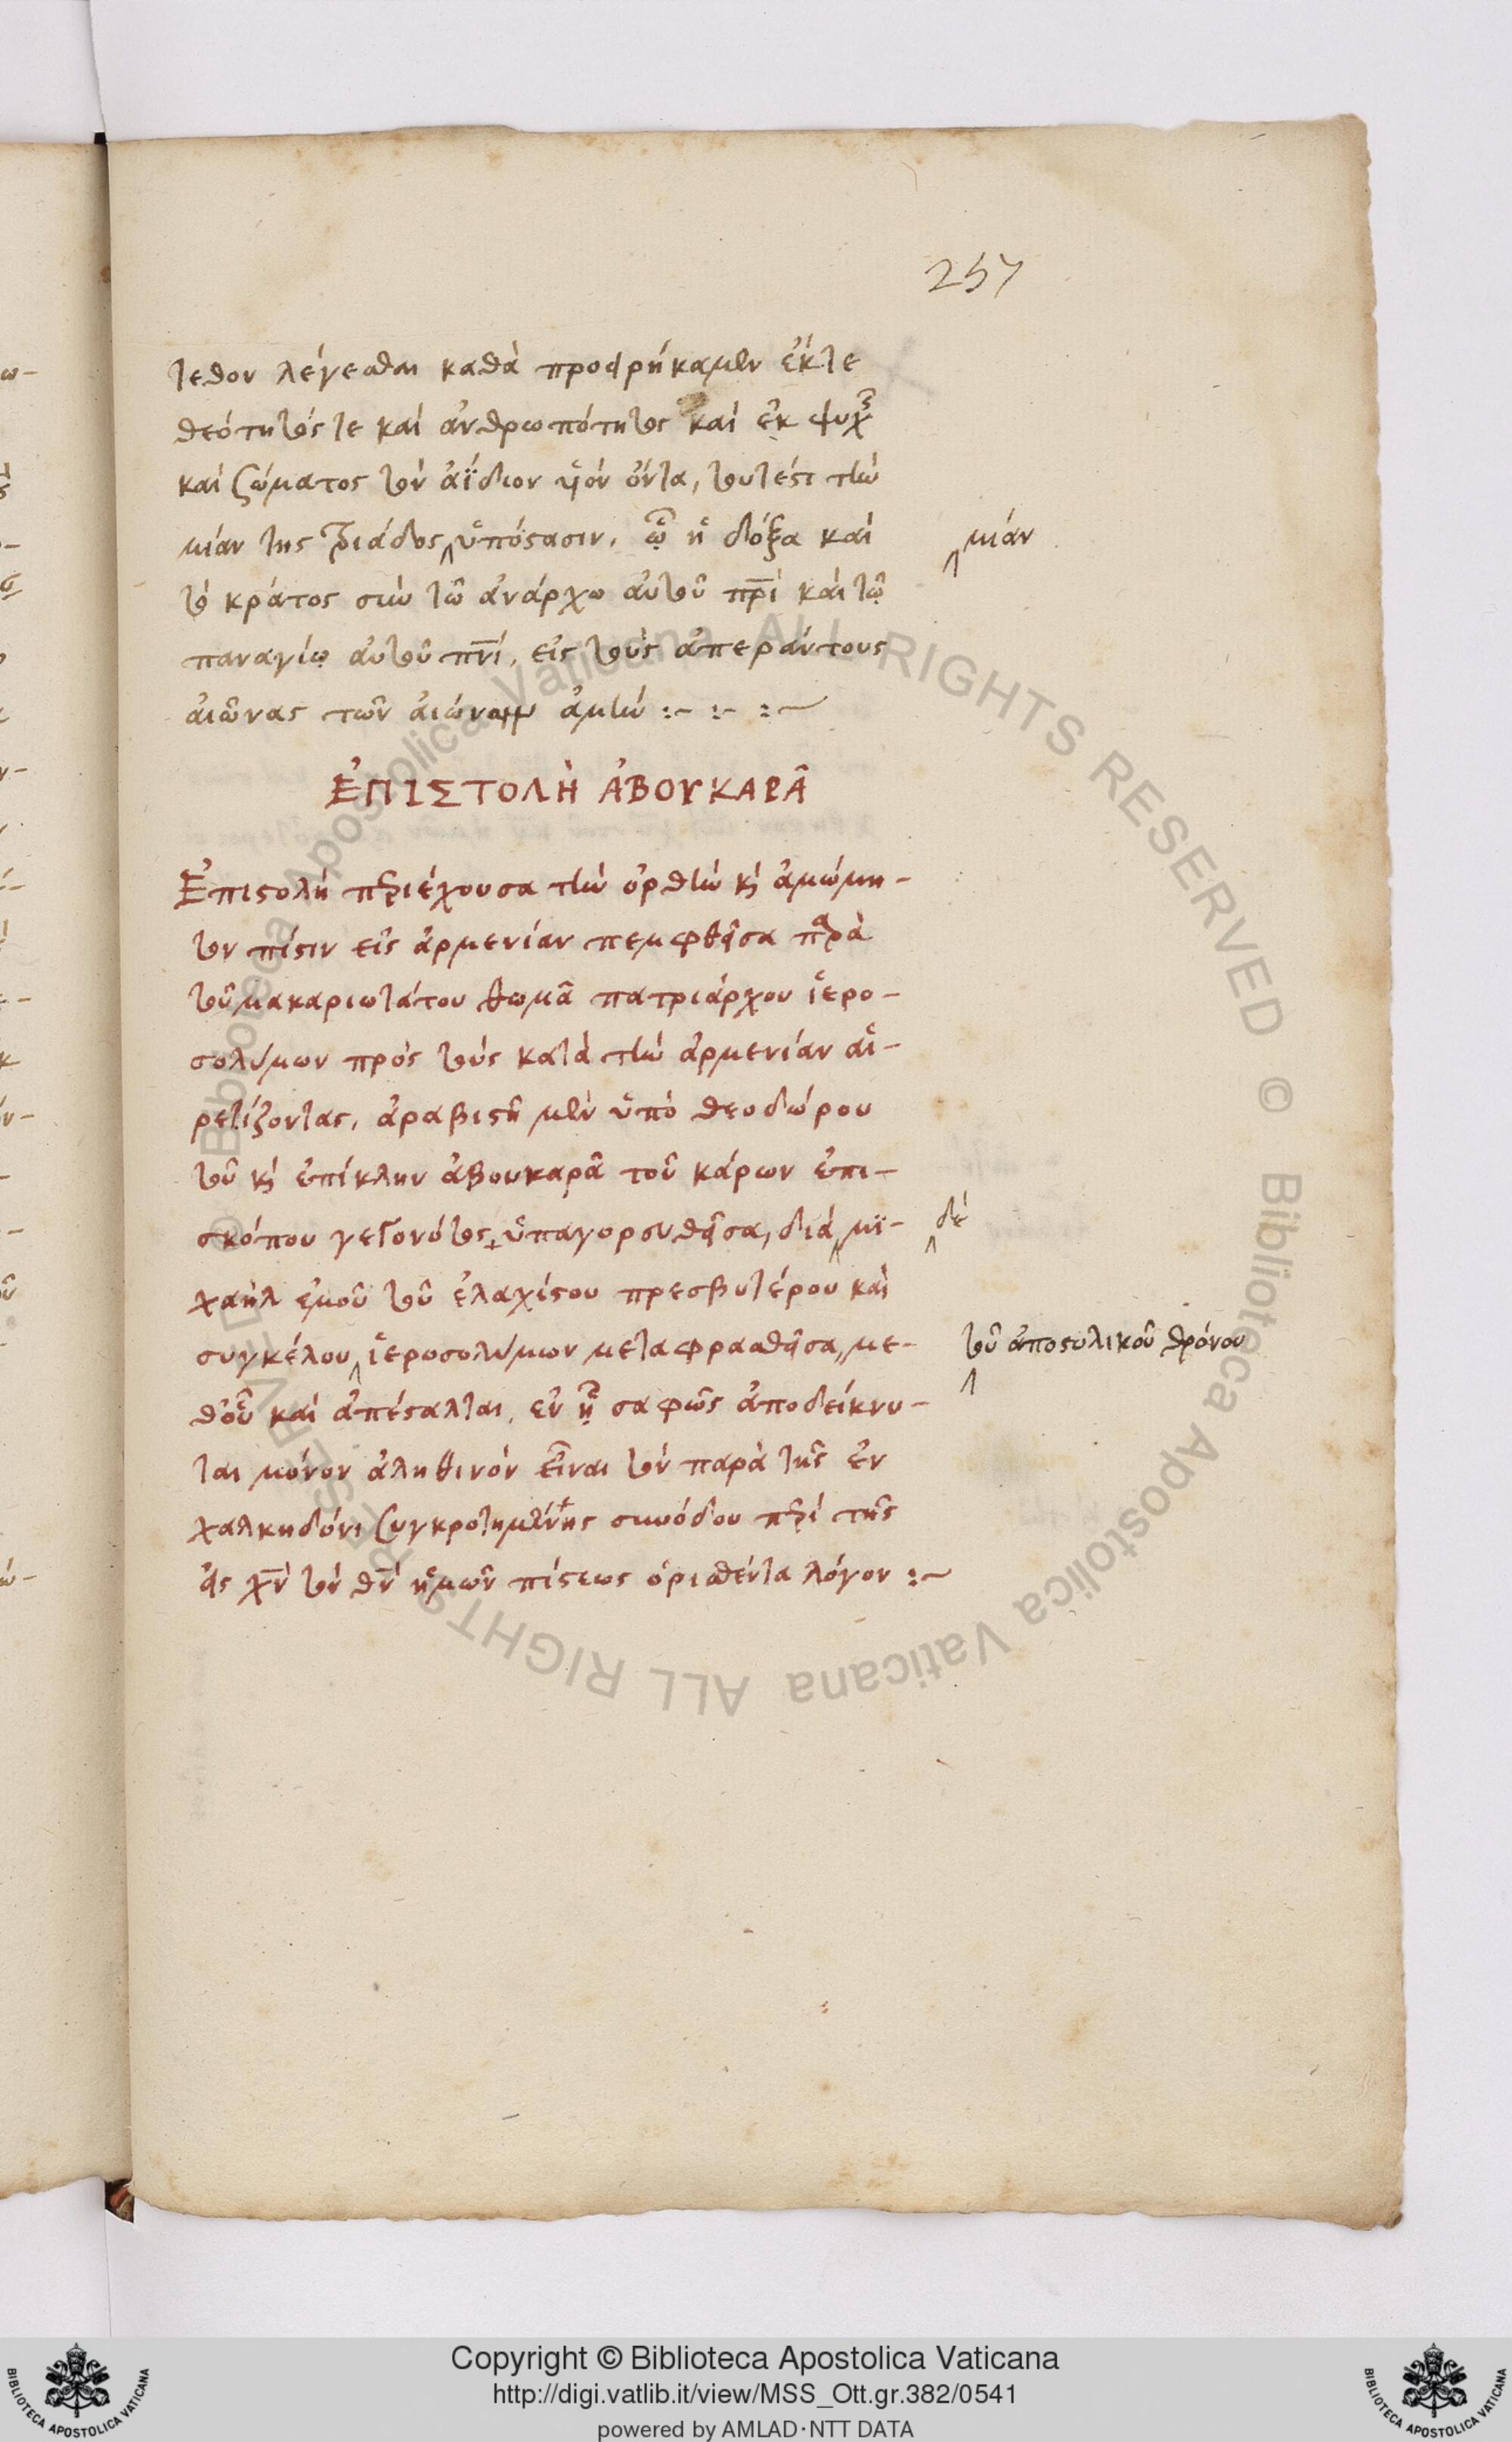 257
τεθον λέγεσθαι καθὰ προειρήκαμεν ἐκ τε
θεότητός τε καὶ ἀνθρωπότητος καὶ ἐκ ψυχῆς
καὶ σώματος τὸν ἀΐδιον υἱὸν ὄντα, τουτέστι τὴν
μίαν τῆς τριάδος ὑπόστασιν. ᾧ ἡ δόξα καὶ
μίαν
τὸ κράτος σὺν τῶ ἀνάρχω αὐτοῦ πρὶ καὶ τῷ
παναγίῳ αὐτοῦ πνὶ, εἰς τοὺς ἀπεράντους
αἰῶνας τῶν αἰώνων ἀμὴν :- :- :-
ἘΠΙΣΤΟΛῊ ἈΒΟΥΚΑΡᾶ
Ἐπιστολὴ περιέχουσα τὴν ὀρθὴν κὶ ἀμώμη-
τον πίστιν εἰς ἀρμενίαν πεμφθεῖσα παρὰ
τοῦ μακαριωτάτου θωμᾶ πατριάρχου ἱερο-
σολύμων πρὸς τοὺς κατὰ τὴν ἀρμενίαν αἱ-
ρετίζοντας, ἀραβιστὶ μὲν ὑπὸ θεοδώρου
τοῦ κὶ ἐπίκλην ἀβουκαρᾶ τοῦ κάρων ἐπι-
σκόπου γεγονότος ὑπαγορευθεῖσα, διὰ μϊ-
δὲ
χαὴλ ἐμοῦ τοῦ ἐλαχίστου πρεσβυτέρου καὶ
συγκέλου ἱεροσολύμων μεταφρασθεῖσα, με-
τοῦ ἀποστολικοῦ θρόνου
θ' οὗ καὶ ἀπέσταλται, ἐν ᾗ σαφῶς ἀποδείκνυ-
ται μόνον ἀληθινὸν εἶναι τὸν παρὰ τῆς ἐν
χαλκηδόνι συγκροτημένης συνόδου περὶ τῆς
εἰς χν̅ τὸν θν̅ ἡμῶν πίστεως ὁρισθέντα λόγον :~
Copyright © Biblioteca Apostolica Vaticana
http://digi.vatlib.it/view/MSS_Ott.gr.382/0541
powered by AMLAD·NTT DATA
BIBLIOTECA APOSTOLICA VATICANA
BIBLIOTECA APOSTOLICA VATICANA
© Biblioteca Apostolica Vaticana ALL RIGHTS RESERVED © Biblioteca Apostolica Vaticana ALL RIGHTS RESERVED